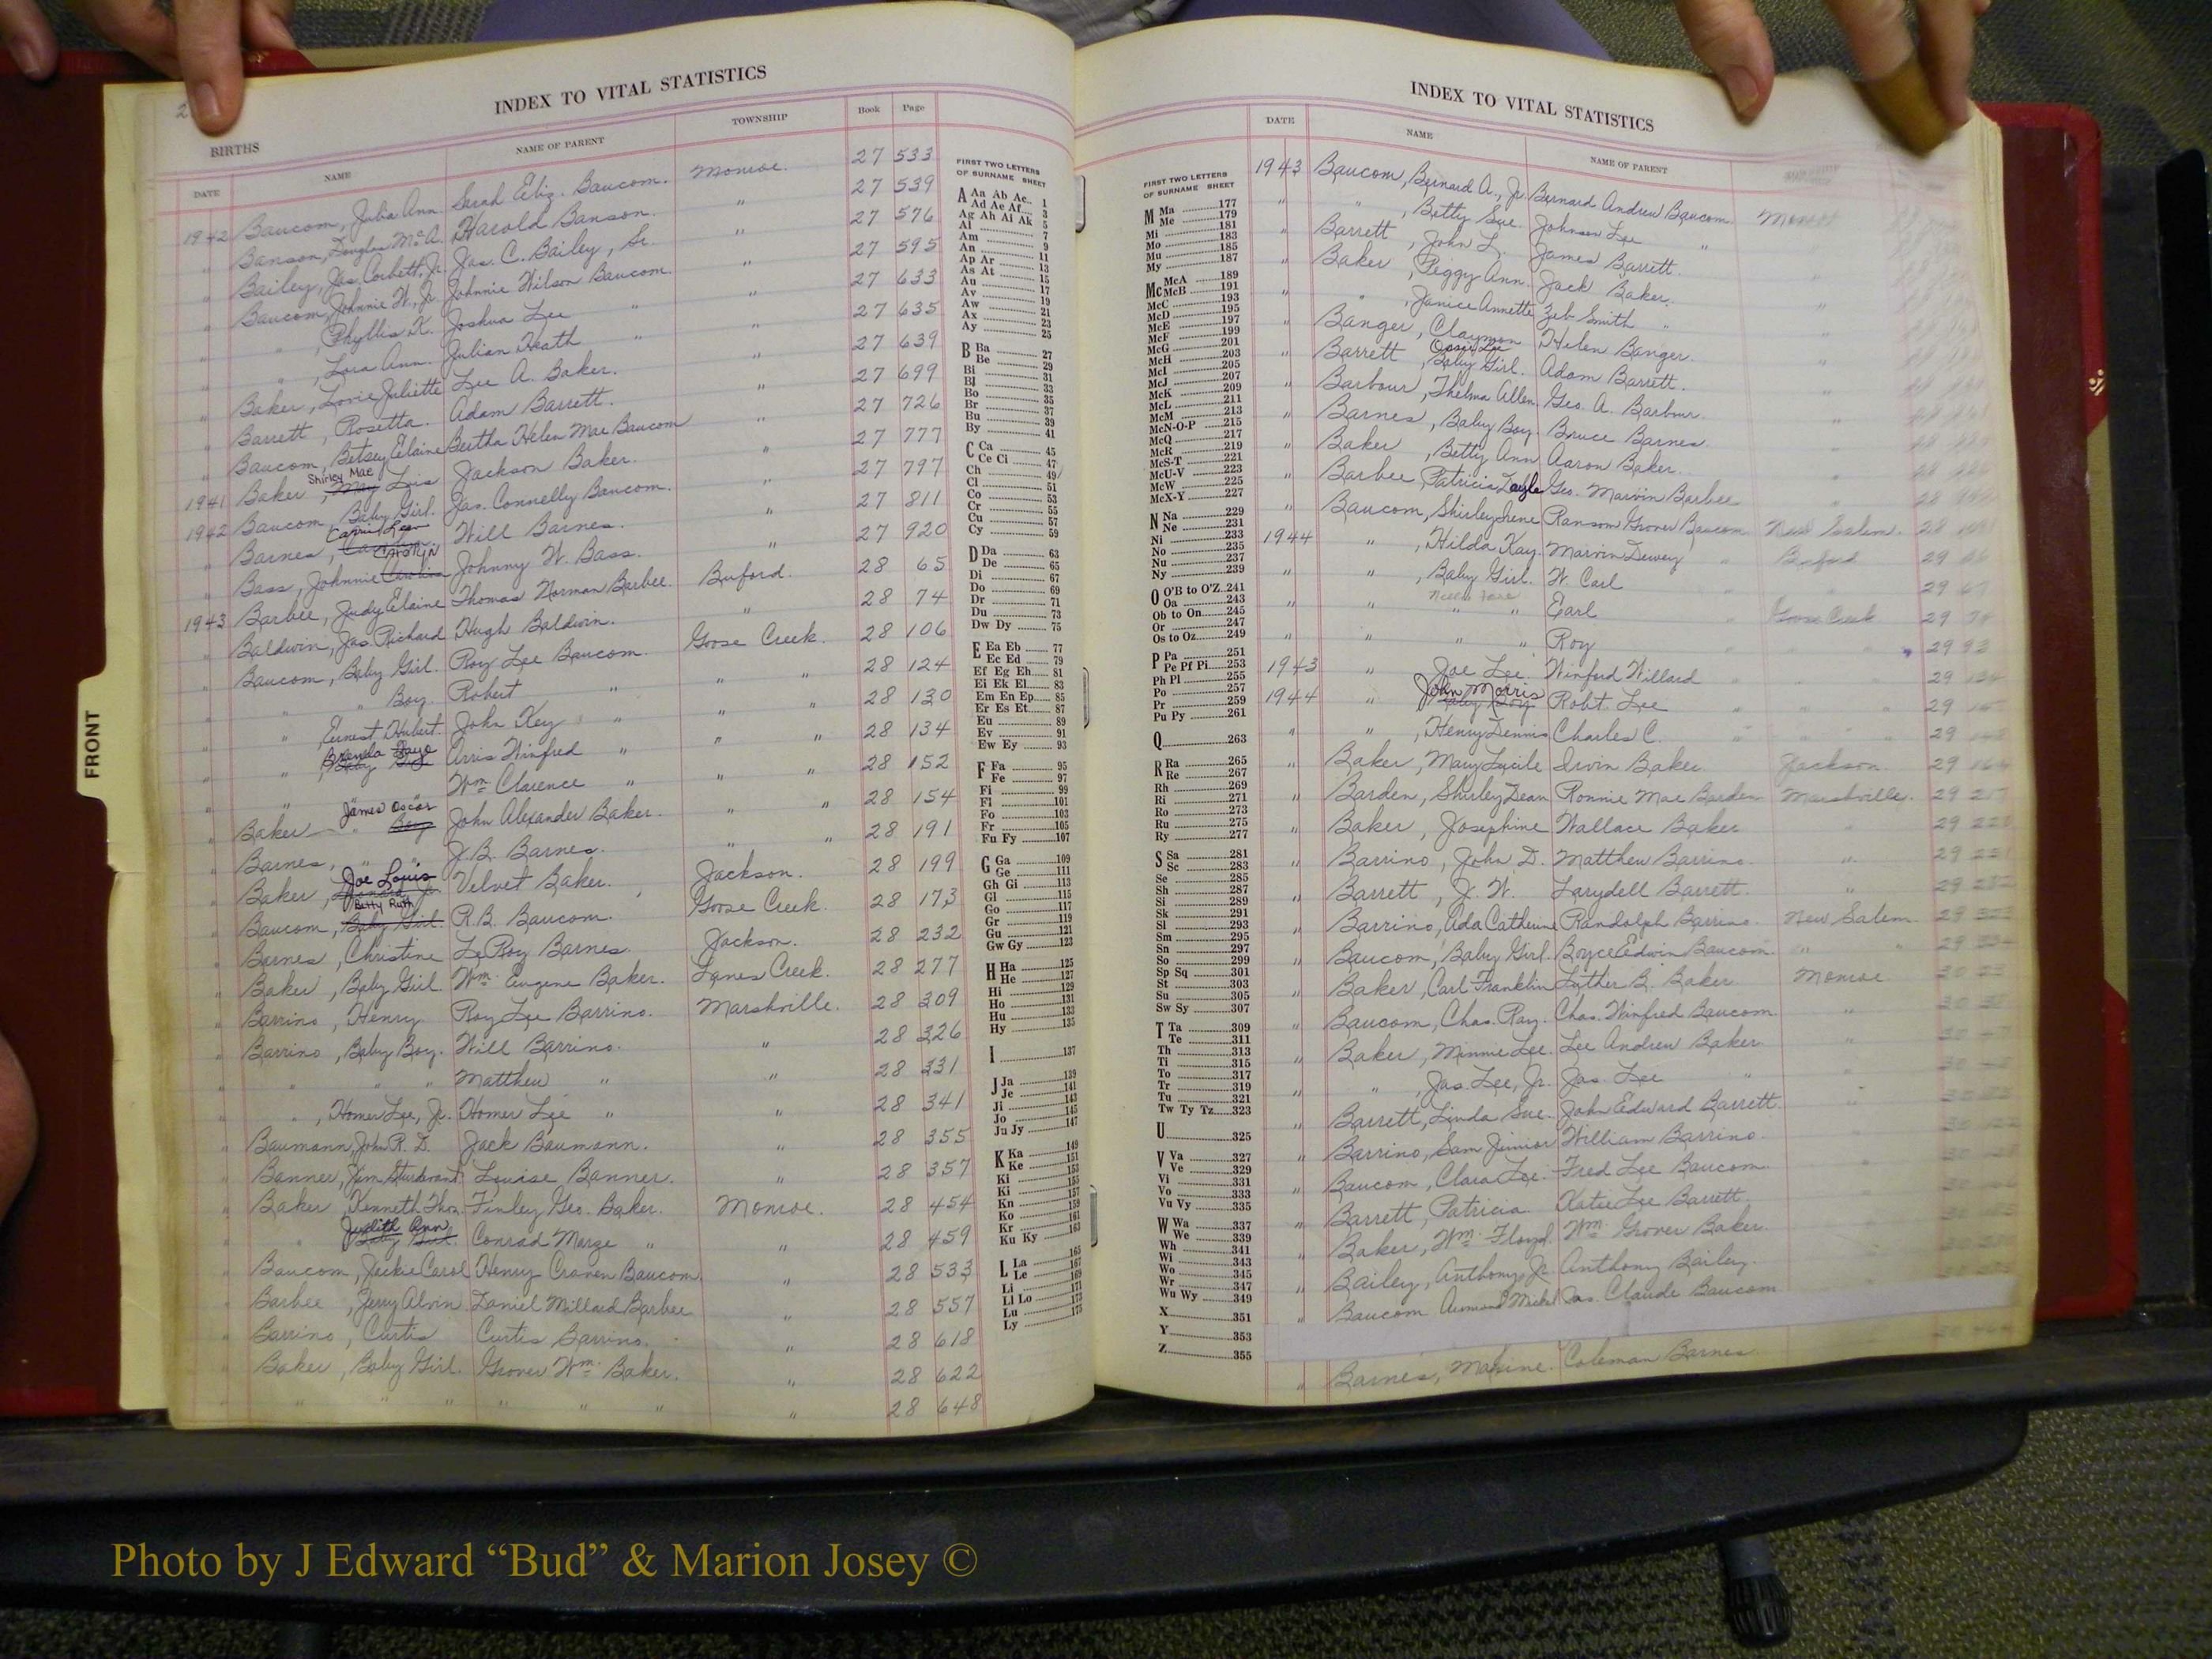 INDEX TO VITAL STATISTICS
BIRTHS
DATE NAME NAME OF PARENT TOWNSHIP Book Page
1942 Baucom, Julia Ann Sarah Eliz. Baucom. Monroe. 27 533
" Banson, Douglas McA. Harold Banson. " 27 539
" Bailey, Jas. Corbett, Jr. Jas. C. Bailey, Sr. " 27 576
" Baucom, Johnnie W., Jr. Johnnie Wilson Baucom. " 27 595
" " , Phyllis K. Joshua Lee " " 27 633
" " , Lora Ann. Julian Heath " " 27 635
" Baker, Lovie Juliette Lee A. Baker. " 27 639
" Barrett, Rosetta. Adam Barrett. " 27 699
" Baucom, Betsey Elaine Bertha Helen Mae Baucom " 27 726
1941 Baker, Shirley Mae Lois Jackson Baker. " 27 777
1942 Baucom, Baby Girl. Jas. Connelly Baucom. " 27 797
" Barnes, Will Barnes. " 27 811
" Bass, Johnnie Johnny W. Bass. " 27 920
1943 Barbee, Judy Elaine Thomas Norman Barbee. Buford. 28 65
" Baldwin, Jas. Richard Hugh Baldwin. " 28 74
" Baucom, Baby Girl. Roy Lee Baucom. Goose Creek. 28 106
" " " Boy. Robert " " " 28 124
" " , Ernest Hubert. John Key " " " 28 130
" " , Brenda Faye Arris Winfred " " " 28 134
" " Wm. Clarence " " " 28 152
" Baker James Oscar John Alexander Baker. " " 28 154
" Barnes, " " J. B. Barnes. " " 28 191
" Baker, Joe Louis Velvet Baker. Jackson. 28 199
" Baucom, Betty Ruth R. B. Baucom. Goose Creek. 28 173
" Barnes, Christine LeRoy Barnes. Jackson. 28 232
" Baker, Baby Girl. Wm. Eugene Baker. Lanes Creek. 28 277
" Barrino, Henry Roy Lee Barrino. Marshville. 28 309
" Barrino, Baby Boy. Will Barrino. " 28 326
" " " " Matthew " " 28 331
" " , Homer Lee, Jr. Homer Lee " " 28 341
" Baumann, John R. D. Jack Baumann. " 28 355
" Banner, Jim Sturdivant Louise Banner. " 28 357
" Baker, Kenneth Thos. Finley Geo. Baker. Monroe. 28 454
" " Judith Ann Conrad Marze " " 28 459
" Baucom, Jackie Carol Henry Craven Baucom. " 28 533
" Barbee, Jerry Alvin Daniel Millard Barbee " 28 557
" Barrino, Curtis Curtis Barrino. " 28 618
" Baker, Baby Girl. Grover Wm. Baker. " 28 622
" " " " " " " " 28 648
FIRST TWO LETTERS
OF SURNAME SHEET
A Aa Ab Ac 1
Ad Ae Af 3
Ag Ah Ai Ak 5
Al 7
Am 9
An 11
Ap Ar 13
As At 15
Au 17
Av 19
Aw 21
Ax 23
Ay 25
B Ba 27
Be 29
Bi 31
Bl 33
Bo 35
Br 37
Bu 39
By 41
C Ca 45
Ce Ci 47
Ch 49
Cl 51
Co 53
Cr 55
Cu 57
Cy 59
D Da 63
De 65
Di 67
Do 69
Dr 71
Du 73
Dw Dy 75
E Ea Eb 77
Ec Ed 79
Ef Eg Eh 81
Ei Ek El 83
Em En Ep 85
Er Es Et 87
Eu 89
Ev 91
Ew Ey 93
F Fa 95
Fe 97
Fi 99
Fl 101
Fo 103
Fr 105
Fu Fy 107
G Ga 109
Ge 111
Gh Gi 113
Gl 115
Go 117
Gr 119
Gu 121
Gw Gy 123
H Ha 125
He 127
Hi 129
Ho 131
Hu 133
Hy 135
I 137
J Ja 139
Je 141
Ji 143
Jo 145
Ju Jy 147
K Ka 149
Ke 151
Ki 153
Ki 155
Kn 157
Ko 159
Kr 161
Ku Ky 163
L La 165
Le 167
Li 169
Ll Lo 171
Lu 173
Ly 175
FRONT
INDEX TO VITAL STATISTICS
FIRST TWO LETTERS
OF SURNAME SHEET
M Ma 177
Me 179
Mi 181
Mo 183
Mu 185
My 187
Mc McA 189
McB 191
McC 193
McD 195
McE 197
McF 199
McG 201
McH 203
McI 205
McJ 207
McK 209
McL 211
McM 213
McN-O-P 215
McQ 217
McR 219
McS-T 221
McU-V 223
McW 225
McX-Y 227
N Na 229
Ne 231
Ni 233
No 235
Nu 237
Ny 239
O O'B to O'Z 241
Oa 243
Ob to On 245
Or 247
Os to Oz 249
P Pa 251
Pe Pf Pi 253
Ph Pl 255
Po 257
Pr 259
Pu Py 261
Q 263
R Ra 265
Re 267
Rh 269
Ri 271
Ro 273
Ru 275
Ry 277
S Sa 281
Sc 283
Se 285
Sh 287
Si 289
Sk 291
Sl 293
Sm 295
Sn 297
So 299
Sp Sq 301
St 303
Su 305
Sw Sy 307
T Ta 309
Te 311
Th 313
Ti 315
To 317
Tr 319
Tu 321
Tw Ty Tz 323
U 325
V Va 327
Ve 329
Vi 331
Vo 333
Vu Vy 335
W Wa 337
We 339
Wh 341
Wi 343
Wo 345
Wr 347
Wu Wy 349
X 351
Y 353
Z 355
DATE NAME NAME OF PARENT
1943 Baucom, Bernard A., Jr. Bernard Andrew Baucom Monroe
" " , Betty Sue. Johnson Lee "
" Barrett, John L. James Barrett.
" Baker, Peggy Ann. Jack Baker.
" " , Janice Annette Zeb Smith "
" Banger, Clayman Helen Banger.
" Barrett, Baby Girl. Adam Barrett.
" Barbour, Thelma Allen. Geo. A. Barbour.
" Barnes, Baby Boy. Bruce Barnes.
" Baker, Betty Ann Aaron Baker.
" Barbee, Patricia Gayle Geo. Marvin Barbee
" Baucom, Shirley Irene Ransom Grover Baucom New Salem. 28
1944 " , Hilda Kay. Marvin Dewey " Buford 29
" " , Baby Girl. W. Carl 29
" " " " Earl " Goose Creek 29
" " " " Roy 29 93
1943 " Joe Lee. Winford Willard 29
1944 " John Morris Robt. Lee 29
" " , Henry Dennis Charles C. 29
" Baker, Mary Lucile Irvin Baker. Jackson 29
" Barden, Shirley Dean Ronnie Mae Barden Marshville. 29
" Baker, Josephine Wallace Baker 29
" Barrino, John D. Matthew Barrino. " 29
" Barrett, J. W. Larydell Barrett. " 29
" Barrino, Ada Catherine Randolph Barrino. New Salem 29
" Baucom, Baby Girl. Boyce Edwin Baucom. " 29
" Baker, Carl Franklin Luther B. Baker Monroe 30
" Baucom, Chas. Ray. Chas. Winfred Baucom. " 30
" Baker, Minnie Lee. Lee Andrew Baker " 30
" " , Jas. Lee, Jr. Jas. Lee " 30
" Barrett, Linda Sue. John Edward Barrett.
" Barrino, Sam Junior William Barrino.
" Baucom, Clara Lee. Fred Lee Baucom.
" Barrett, Patricia Katie Lee Barrett.
" Baker, Wm. Floyd. Wm. Grover Baker
" Bailey, Anthony, Jr. Anthony Bailey.
Baucom Jas. Claude Baucom
" Barnes, Maxine. Coleman Barnes.
Photo by J Edward “Bud” & Marion Josey ©